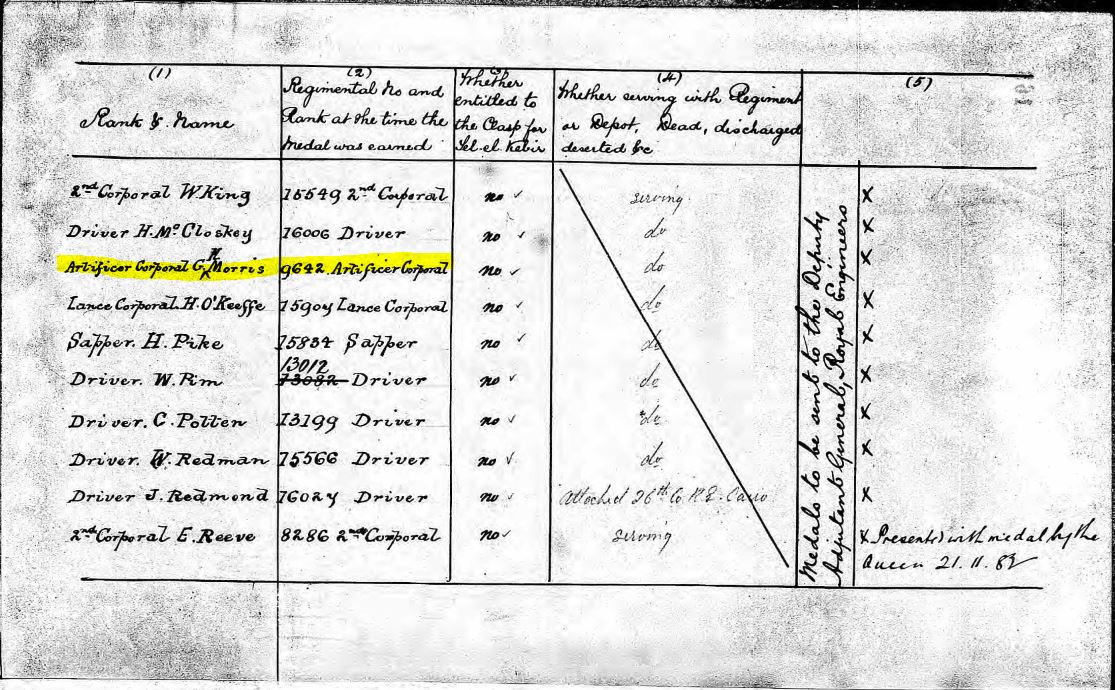 (1) (2) (4) (5)
Rank & Name
Regimental No and
Rank at the time the
Medal was earned
Whether
entitled to
the Clasp for
Tel-el-Kebir
Whether serving with Regiment
or Depot, Dead, discharged
deserted &c
2nd Corporal W. King 15549 2nd Corporal no ✓ serving x
Driver H. Mc Closkey 16006 Driver no ✓ do x
Artificer Corporal G H Morris 9642 Artificer Corporal no ✓ do x
Lance Corporal H. O'Keeffe 15904 Lance Corporal no ✓ do x
Sapper. H. Pike 15834 Sapper no ✓ do x
13012
Driver. W. Pim 13082 Driver no ✓ do x
Driver. C. Potten 13199 Driver no ✓ do x
Driver. W. Redman 15566 Driver no ✓ do x
Driver J. Redmond 16024 Driver no ✓ Attached 26th Co R.E. Cairo x
2nd Corporal E. Reeve 8286 2nd Corporal no ✓ serving
Medals to be sent to the Deputy
Adjutant General, Royal Engineers
x Presented with medal by the
Queen 21.11.82